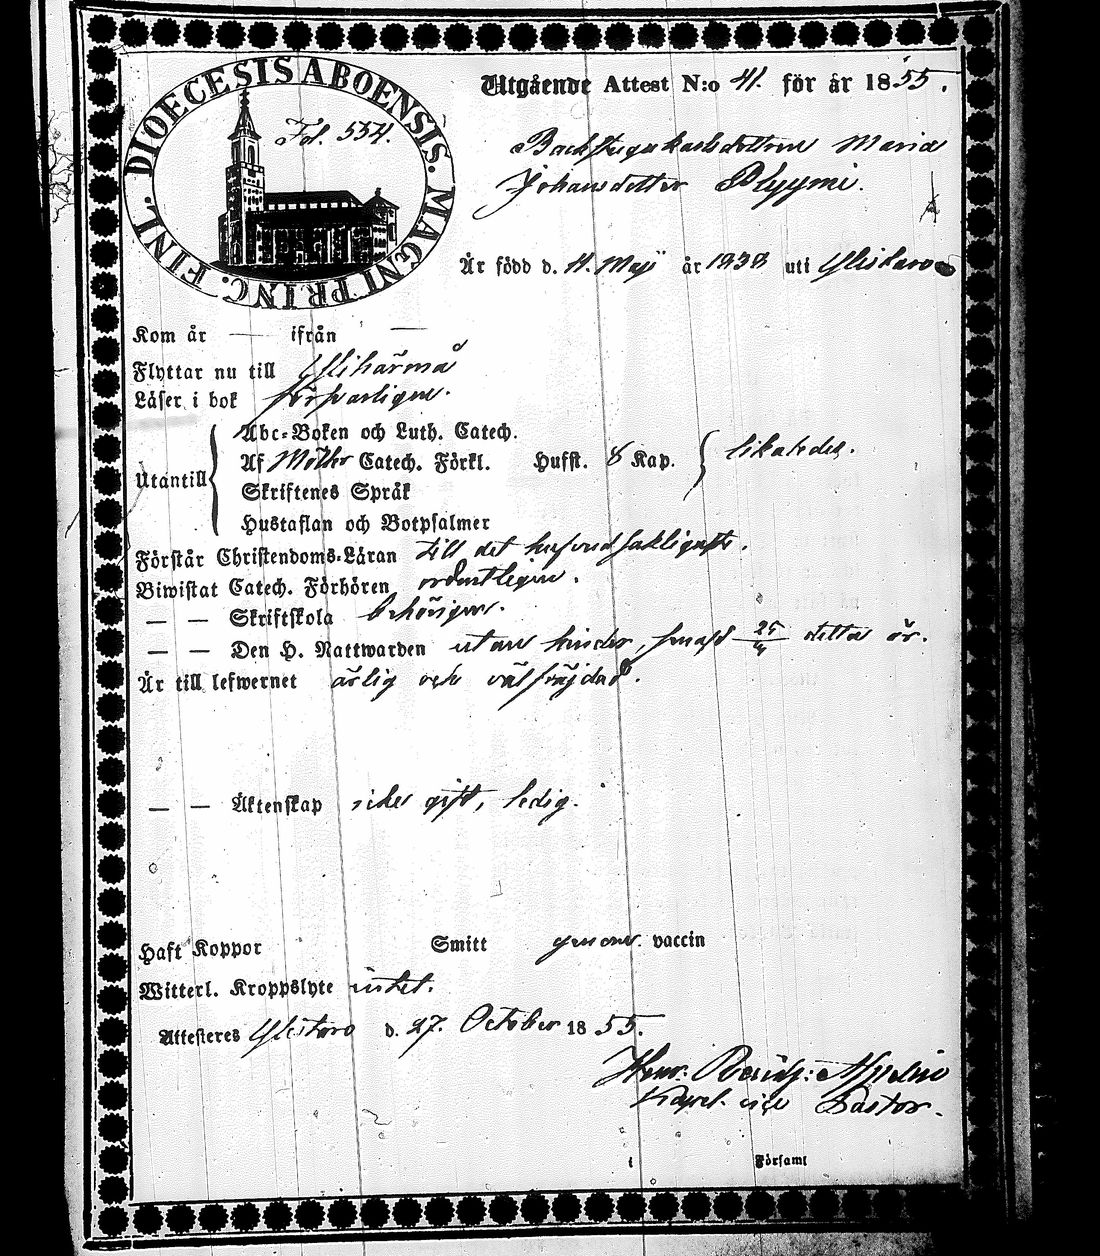 DIOECESIS ABOENSIS. MAGNI PRINC. FINL.
Fol. 554.
Utgående Attest N:o 41. för år 1855.
Backstuguhusdottren Maria
Johansdotter Plyymi.
Är född d. 4. Maji år 1838 uti Ylistaro
Kom år — ifrån —
Flyttar nu till Ylihärmä
Läser i bok försvarligen.
Utantill
Abc-Boken och Luth. Catech.
Af Möller Catech. Förkl. Hufst. 8 Kap. likaledes.
Skriftenes Språk
Hustaflan och Botpsalmer
Förstår Christendoms-Läran till det hufvudsakligaste.
Biwistat Catech. Förhören ordentligen.
— — Skriftskola behörigen.
— — Den H. Nattwarden utan hinder, senast detta år.
Är till lefwernet ärlig och välfräjdad.
— — Äktenskap icke gift, ledig.
Haft Koppor Smitt genom vaccin
Witterl. Kroppslyte intet.
Attesteres Ylistaro d. 27. October 1855.
Henr.
Kapel. vice Pastor.
i Församl